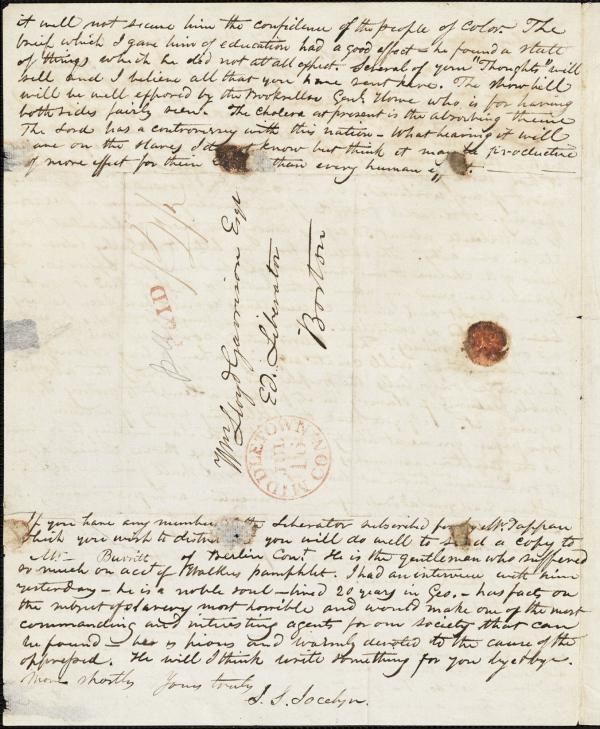 it will not secure him the confidence of the people of color. The
brief which I gave him of education had a good effect – he found a state
of things which he did not at all expect. Several of your "Thoughts" will
sell and I believe all that you have sent here. The show bill
will be well exposed by the Bookseller Genl. Howe who is for having
both sides fairly seen. The cholera at present is the absorbing theme
The Lord has a controversy with this nation – What bearing it will
have on the slaves I do not know but think it may be productive
of more effect for their than every human
PAID
Wm Lloyd Garrison Esqr
Ed. Liberator
Boston
MIDDLETOWN CON.
JUL
If you have any number of the Liberator subscribed for by Mr. Tappan
which you wish to distribute you will do well to send a copy to
Mr. Burritt, of Berlin Cont. He is the gentleman who suffered
so much on acct of Walkers pamphlet. I had an interview with him
yesterday – he is a noble soul – lived 20 years in Geo. – has facts on
the subject of slavery most horrible and would make one of the most
commanding and interesting agents for our society that can
be found – he is pious and warmly devoted to the cause of the
oppressed. He will I think write something for you bye & bye.
More shortly Yours truly
S. S. Jocelyn.